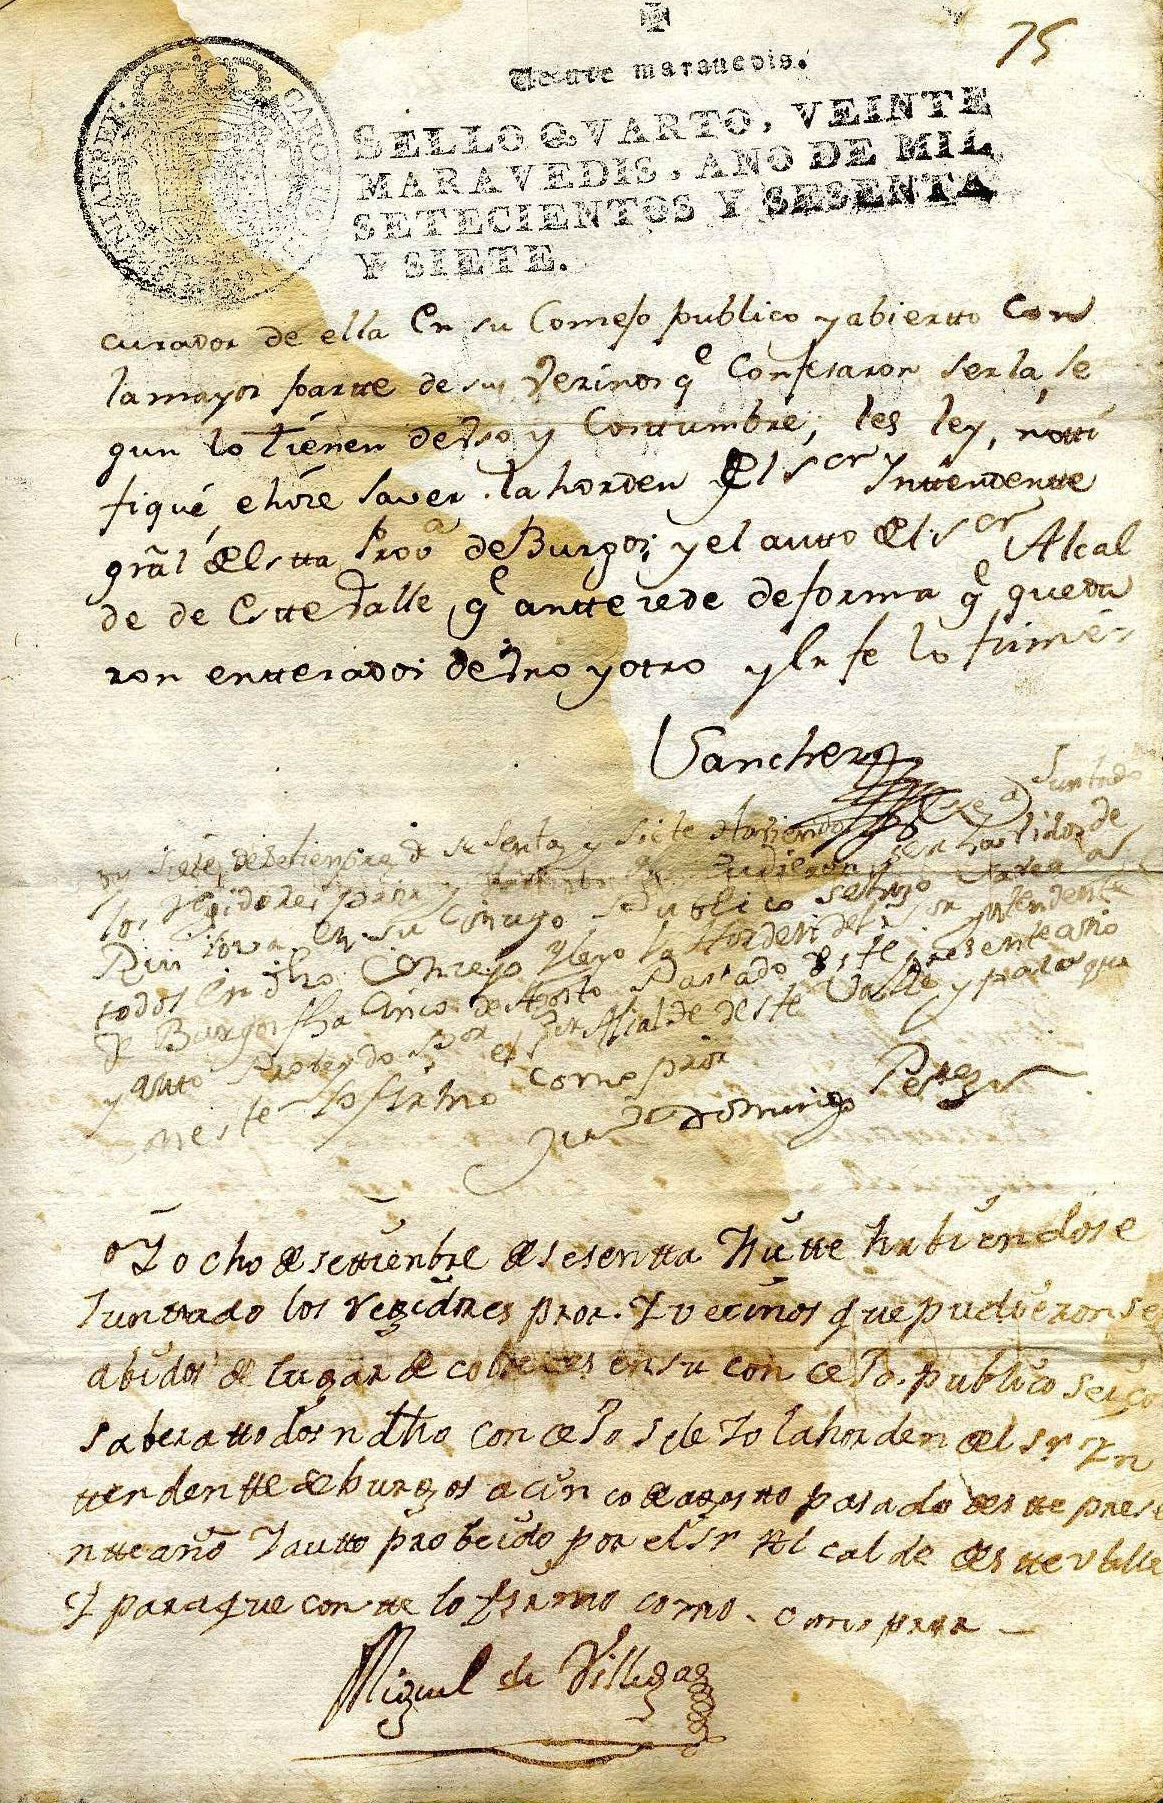 75
Veinte marauedis.
SELLO QVARTO, VEINTE
MARAVEDIS, AÑO DE MIL
SETECIENTOS Y SESENTA
Y SIETE.
curador de ella En su Consejo publico y abiertto Con
la mayor partte de sus Vezinos q̃ Confesaron ser la, se
gun lo tienen de Vso y Costtumbre, les ley, notti
fiqué e hize saver la horden del Sor Inttendentte
grãl del stta Provª de Burgos, y el autto del Sor Alcal
de de Estte Valle, q̃ antte zede de forma q̃ queda
ron entterados de Vno y otro y En fe lo firmé=
Sanchez
oy siete de Setiembre de sesenta y siete Haviendose Juntado
los Rejidores prror y
en su Conzejo Publico se hizo saver a
todos en dho Conzejo y leyo la Horden del Sor yntendente
de Burgos fha Cinco de Agosto Pasado deste presente año
y Auto Probeydo Por el Sor Alcalde deste Valle y para que
conste lo firmo como prror
Juº Domingo Perez
oy ocho de settienbre de sesentta Y siette habiendose
Junttado los rezidores pror. Y vecinos que pudieron ser
abidos de lugar de cobreces en su con ceJo. publico se iço
saber a ttodos n dho con ceJo s le Yo la horden del Sr Yn
ttendentte de burgos a cin co de agostto pasado des tte prese
ntte año Y autto probeido por el Sr Al cal de des tte balle
Y para que constte lo firmo como. como pror
Miguel de Villegas